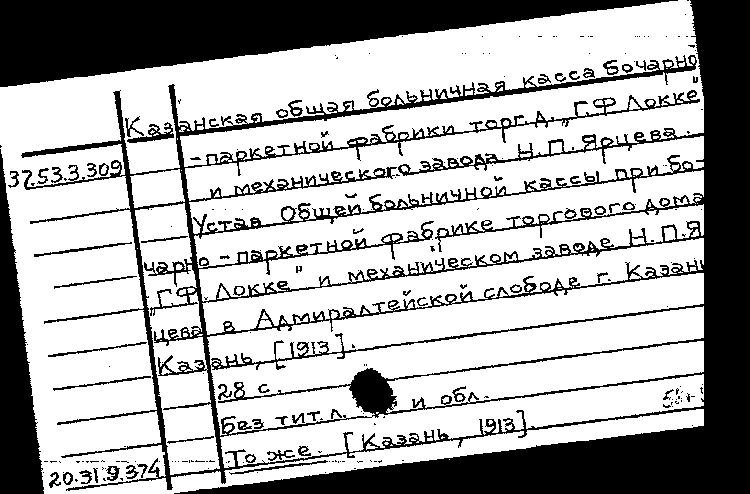 Казанская общая больничная касса бочарно
37.53.3.309
-паркетной фабрики торг.д. „Г.Ф Локке"
и механического завода Н.П. Ярцева.
Устав Общей больничной кассы при бо-
чарно-паркетной фабрике торгового дома
„Г.Ф. Локке" и механическом заводе Н.П.Я
цева в Адмиралтейской слободе г. Казань
Казань, [1913].
28 с.
Без тит.л. и обл.
То же. [Казань, 1913].
20.31.9.374